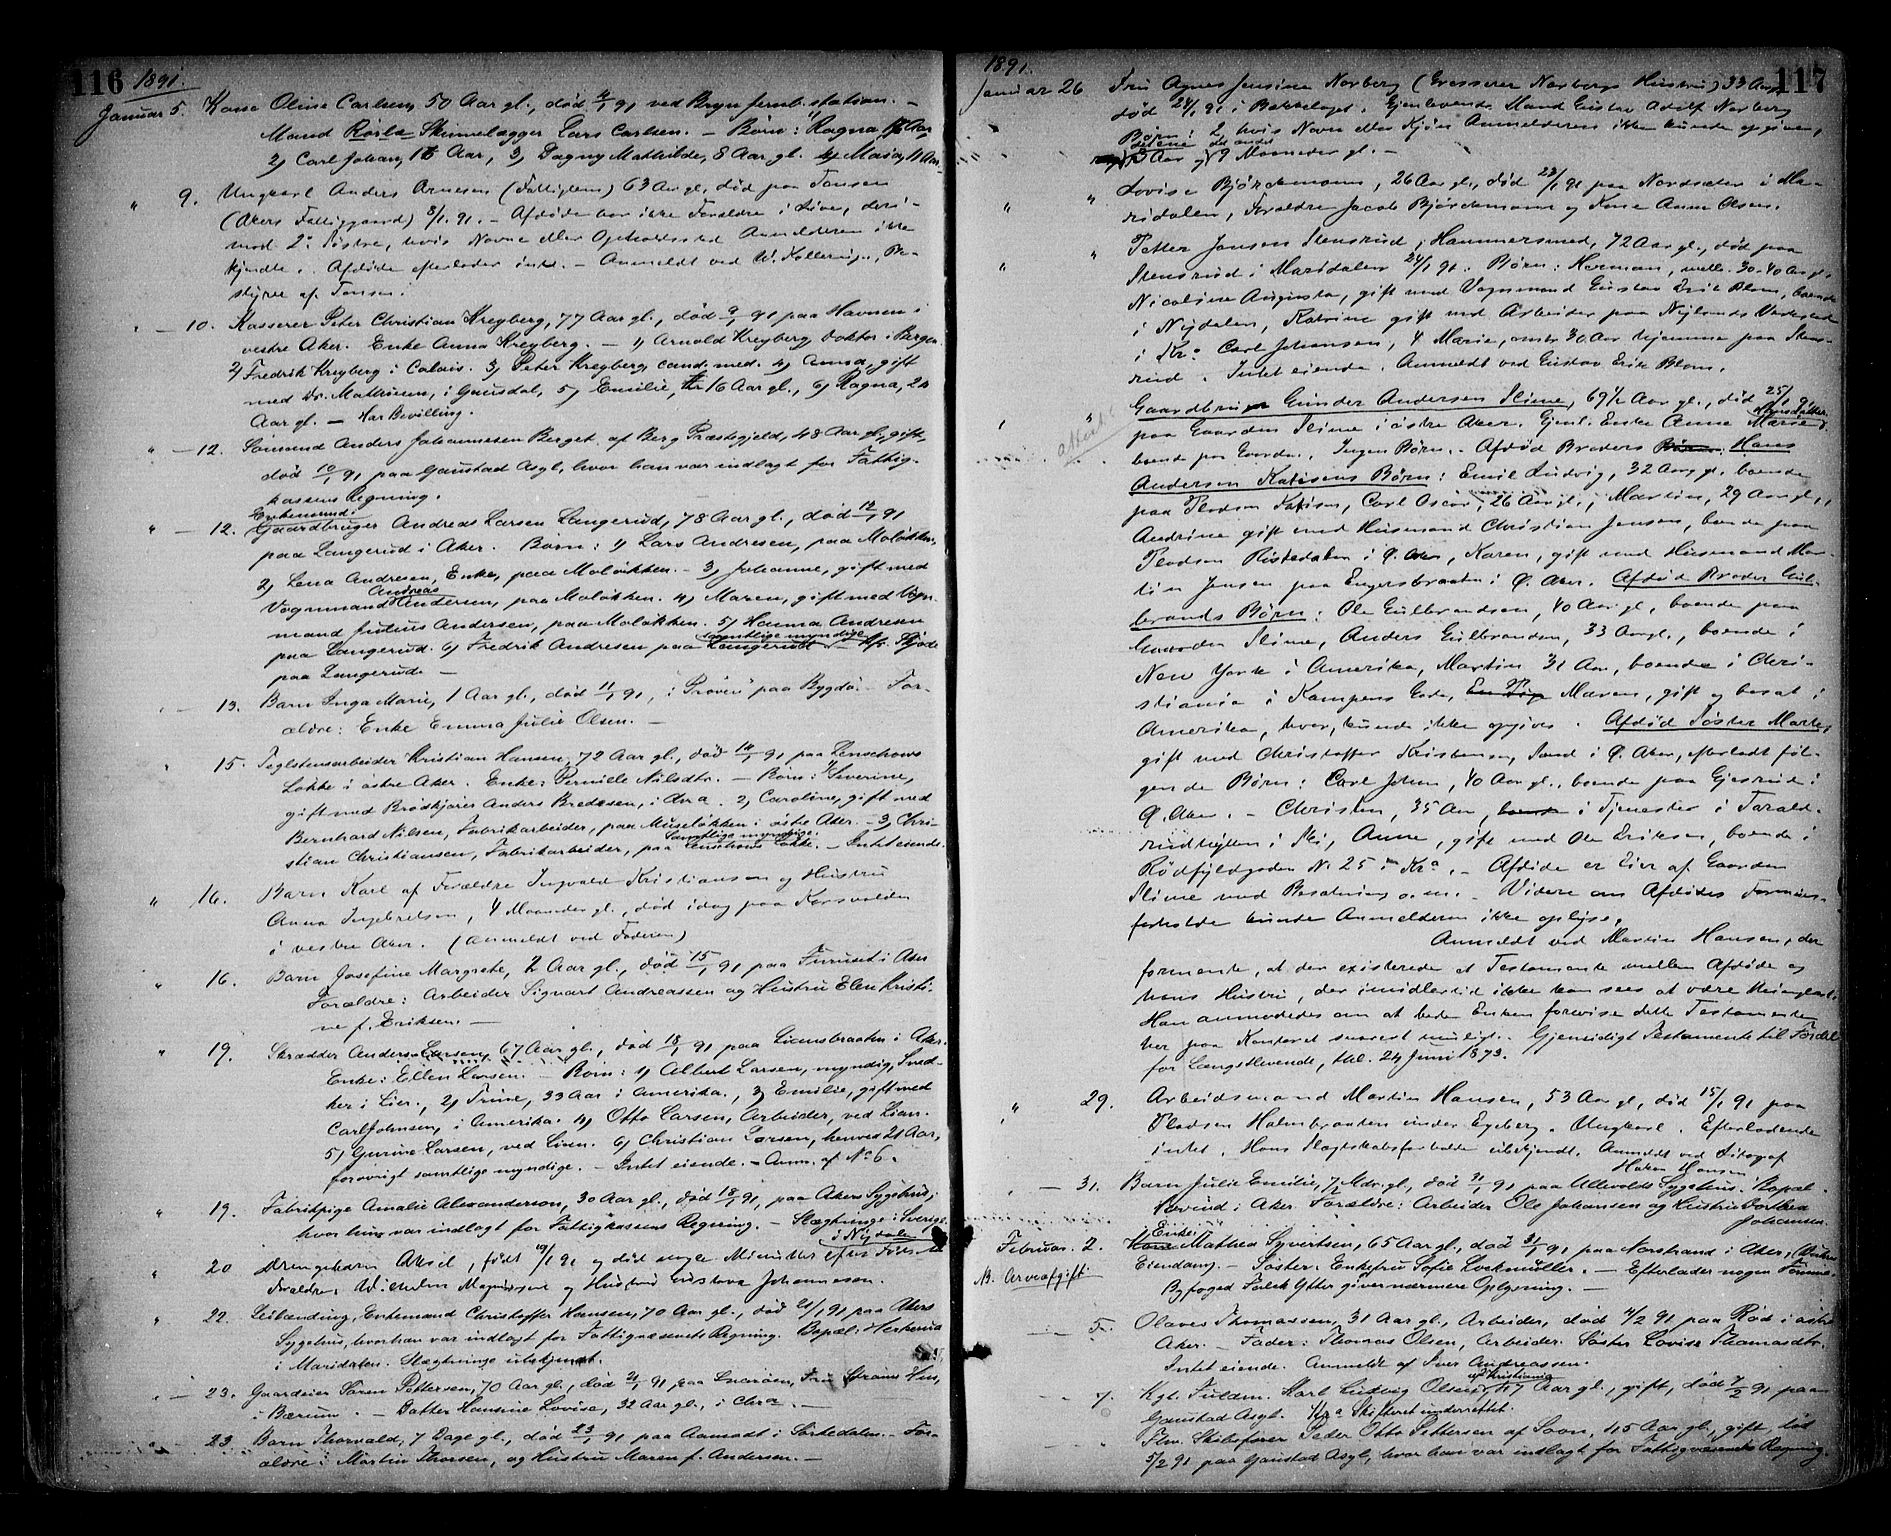 116 1891.
Januar 5. Kone Oline Carlsen, 50 Aar gl., død 4/1 91 ved Bryn jernb. station. –
Mand Rørla Skinnelægger Lars Carlsen. – Børn: 1) Ragna, Aar
2) Carl Johan, 16 Aar, 3) Dagny Mathilde, 8 Aar gl. 4) Maria, 11 Aar.
" 9. Ungkarl Anders Arnesen (Fattiglem) 63 Aar gl., død paa Tonsen
(Akers Fattiggaard) 8/1 91. – Afdøde har ikke Forældre i Live, deri-
mod 2 Søstre, hvis Navne eller Opholdssted Anmelderen ikke
kjendte. Afdøde efterlader intet. – Anmeldt ved W. Kollerup, Be-
styrer af Tonsen.
" – 10. Kasserer Peter Christian Kreyberg, 77 Aar gl., død 9/1 91 paa Havnen i
vestre Aker. Enke Anna Kreyberg. – 1) Arnold Kreyberg, doktor i Bergen
2) Fredrik Kreyberg i Calais. 3) Peter Kreyberg, cand. med. 4) Anna, gift
med Dr. Mathiesen, i Gausdal, 5) Emilie, 16 Aar gl., 6) Ragna, 24
Aar gl. – Har Bevilling.
" – 12. Sømand Anders Johannesen Berget af Berg Præstegjeld, 48 Aar gl., gift,
død 10/1 91 paa Gaustad Asyl, hvor han var indlagt for Fattig-
kassens Regning.
Enkemand.
" – 12. Gaardbruger Andreas Larsen Langerud, 78 Aar gl., død 12/1 91
paa Langerud i Aker. Børn: 1) Lars Andresen, paa Moløkken,
2) Lena Andresen, Enke, paa Moløkken. – 3) Johanne, gift med
Andreas
Vognmand Andersen, paa Moløkken. 4) Maren, gift med Vogn-
mand Julius Andersen, paa Moløkken. 5) Hanna Andresen
samtlige myndige
paa Langerud. 6) Fredrik Andresen paa Langerud – Hr. Skjøde
paa Langerude –
" – 13. Barn Inga Marie, 1 Aar gl., død 11/1 91, i "Prøven" paa Bygdø. – For-
ældre: Enke Emma Julie Olsen. –
" 15. Teglstensarbeider Kristian Hansen, 72 Aar gl., død 14/1 91 paa Lenschows
Løkke i østre Aker. Enke: Pernille Nilsdtr. – Børn: 1) Severine,
gift med Brødkjører Anders Bredesen, i Chra. 2) Caroline, gift med
Bernhard Nilsen, Fabrikarbeider, paa Museløkken i østre Aker. – 3) Chri-
samtlige myndige.
stian Christiansen, Fabrikarbeider, paa Lenschows Løkke. – Intet eiende.
" 16. Barn Karl af Forældre Ingvald Kristiansen og Hustru
Anna Ingebretsen, 4 Maaneder gl., død idag paa Korsvolden
i vestre Aker. (Anmeldt ved Faderen)
" 16. Barn Josefine Margrete, 2 Aar gl., død 15/1 91 paa Furuset i Aker
Forældre: Arbeider Sigvart Andreassen og Hustru Elen Kristi-
ne f. Eriksen. –
" 19. Skrædder Anders Larsen, 67 Aar gl., død 18/1 91 paa Liansbraaten i Aker.
Enke: Ellen Larsen. – Børn: 1) Albert Larsen, myndig, Sned-
ker i Lier., 2) Trine, 33 Aar i Amerika., 3) Emilie, gift med
Carl Johnsen, i Amerika. 4) Otto Larsen, Arbeider, ved Lian.
5) Gurine Larsen, ved Lian. 6) Christian Larsen, henved 21 Aar,
forøvrigt samtlige myndige. – Intet eiende. – Anm. af No 6.
" 19. Fabrikpige Amalie Alexanderson, 30 Aar gl., død 18/1 91, paa Akers Sygehus,
hvor hun var indlagt for Fattigkassens Regning. – Slægtninge i Sverige.
i Nydalen
" 20 Drengebarn Aksel, født 19/1 91 og død nogle Minutter efter Fødselen
Forældre, Wilhelm Magnusen og Hustru Gustava Johannesen.
" 22. Leilænding, Enkemand Christoffer Hansen, 70 Aar gl., død 21/1 91 paa Akers
Sygehus, hvor han var indlagt for Fattigvæsenets Regning. Bopæl: Heskerud
i Maridalen. Slægtninge ubekjendt.
" – 23. Gaardeier Søren Pettersen, 70 Aar gl., død 21/1 91 paa Snarøen,
i Bærum. – Datter Hansine Lovise, 32 Aar gl., i Chra. –
" – 23. Barn Thorvald, 7 Dage gl., død 23/1 91 paa Aamodt i Sørkedalen. – For-
ældre: Martin Thorsen, og Hustru Maren f. Andersen. –
1891. 117
Januar 26 Fru Agnes Jensine Norberg (Grosserer Norbergs Hustru) 33 Aar,
død 24/1 91 i Bækkelaget. Gjenlevende Mand Gustav Adolf Norberg
Børn: 2, hvis Navn eller Kjøn Anmelderen ikke kunde opgive,
det ene det andet
3 Aar og 9 Maaneder gl. –
" " Lovise Bjørdemann, 26 Aar gl., død 23/1 91 paa Nordsæter i Ma-
ridalen, Forældre Jacob Bjørdemann og Kone Anne Olsen.
" " Petter Jensen Stensrud, Hammersmed, 72 Aar gl., død paa
Stensrud i Maridalen 24/1 91. Børn: Herman, mell. 30-40 Aar gl.,
Nicoline Augusta, gift med Vognmand Gustav Erik Blom, boende
i Nydalen, Katrine gift med Arbeider paa Nylands Værksted
i Kra. Carl Johansen, 4 Marie, over 30 Aar hjemme paa Stens-
rud. Intet eiende. Anmeldt ved Gustav Erik Blom.
" " Gaardbruger Gunder Andersen Slime, 69 1/2 Aar gl., død 25/1 91
Hansdatter,
paa Gaarden Slime i østre Aker. Gjenl. Enke Anne Marie
attest
boende paa Gaarden. Ingen Børn. – Afdød Broders Børn Hans
Andersen Katisens Børn: Emil Ludvig, 32 Aar gl. boende
paa Pladsen Katisen, Carl Oscar, 26 Aar gl., Martin, 29 Aar gl.,
Andrine gift med Husmand Christian Jensen, boende paa
Pladsen Røstedalen i Ø. Aker, Karen, gift med Husmand Mar-
tin Jensen paa Engersbraaten i Ø. Aker. Afdød Broder Gul-
brands Børn: Ole Gulbrandsen, 40 Aar gl., boende paa
Gaarden Slime, Anders Gulbrandsen, 33 Aar gl., boende i
New York i Amerika, Martin 31 Aar, boende i Chri-
stiania i Kampens Gade, Maren, gift og bosat i
Amerika, hvor, kunde ikke opgives. Afdød Søster Marte,
gift med Christoffer Kristensen, Sand i Ø. Aker, efterladt føl-
gende Børn: Carl Johan, 40 Aar gl., boende paa Gjesrud i
Ø. Aker. – Christen, 35 Aar, boende i Tjeneste i Tarald-
rudhytten i Ski, Anne, gift med Ole Eriksen, boende i
Rødfyldgaden N: 25 i Kra. – Afdøde er Eier af Gaarden
Slime med Besætning o. m. – Videre om Afdødes Formues-
forholde kunde Anmelderen ikke oplyse.
Anmeldt ved Martin Hansen, der
formente, at der existerede et Testamente mellem Afdøde og
hans Hustru, der imidlertid ikke kan sees at være thinglæst.
Han anmodedes om at bede Enken forevise dette Testamente
her paa Kontoret snarest muligt. Gjensidigt Testamente til Fordel
for Længstlevende, thl. 24 Juni 1873.
" 29. Arbeidsmand Martin Hansen, 53 Aar gl., død 15/1 91 paa
Pladsen Halmbraaten under Egeberg. Ungkarl. Efterladende
intet. Hans Slægtskabsforholde ubekjendt. Anmeldt ved Litograf
Haken Hansen
" – 31. Barn Julie Emilie, 7 Mdr. gl., død 31/1 91 paa Ullevolds Sygehus. Bopæl
i Aker. Forældre: Arbeider Ole Johansen og Hustru Dorthea
Johansen.
Enke
Februar. 2. Kone Mathea Syvertsen, 65 Aar gl., død 31/1 91 paa Norstrand i Aker,
N. Arveafgift Eiendom. – Søster: Enkefru Sofie Lockmüller. – Efterlader nogen Formue.
Byfoged Falck Ytter giver nærmere Oplysning. –
" – 5. Olaves Thomassen, 31 Aar gl., Arbeider, død 4/2 91 paa Rød i østre
Aker. – Fader: Thomas Olsen, Arbeider. Søster Lovise Thomasdtr.
Intet eiende. Anmeldt af Iver Andreassen.
af Kristiania
" – 7. Kgl. Fuldm. Karl Ludvig Olsen, 47 Aar gl., gift, død 7/2 91 paa
Gaustad Asyl. Kra Skifteret underrettet.
Flm. Skibsfører Peter Otto Pettersen af Soon, 45 Aar gl., gift, død
5/2 91 paa Gaustad Asyl, hvor han var indlagt for Fattigvæsenets Regning.